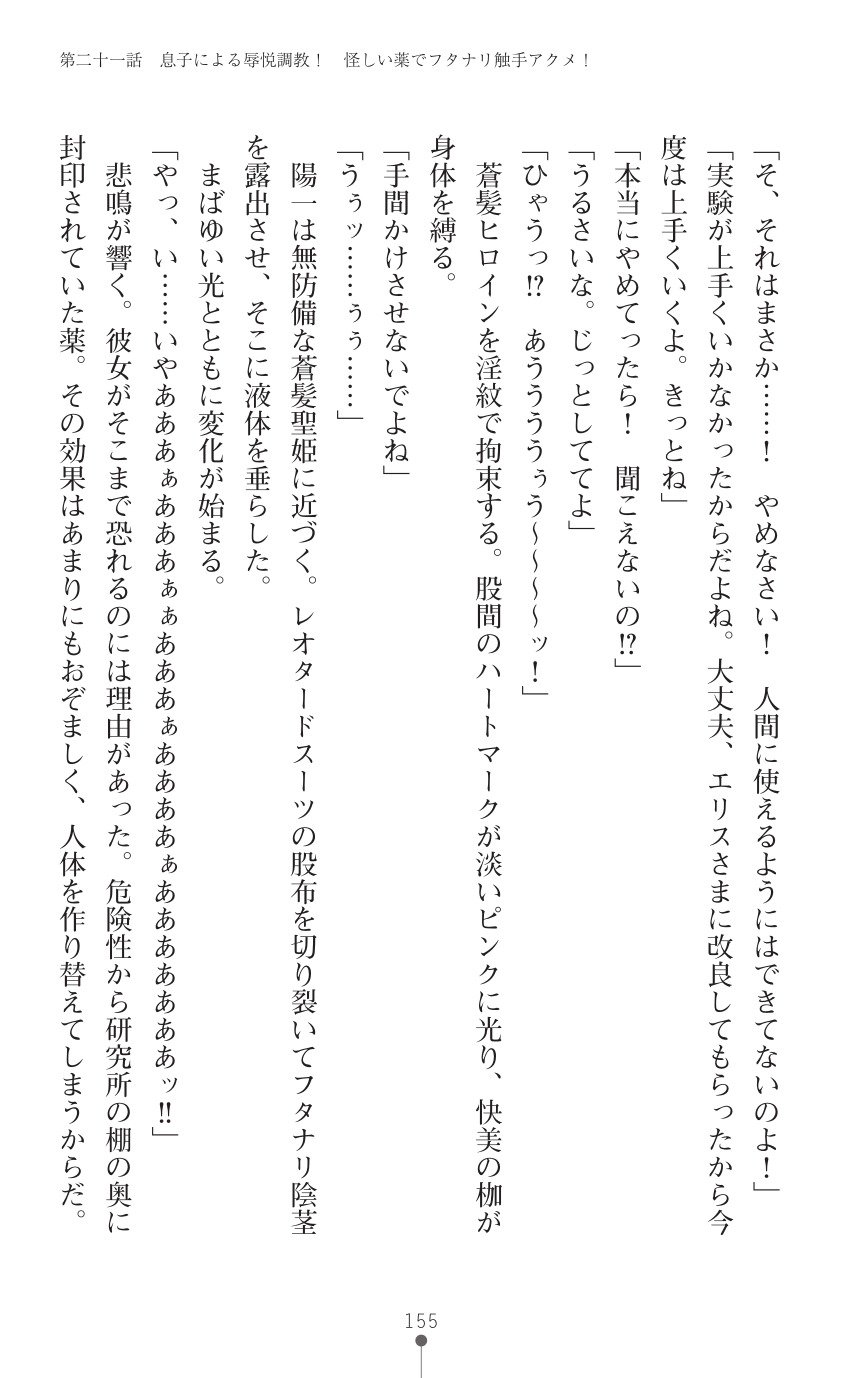 第二十一話　息子による辱悦調教！　怪しい薬でフタナリ触手アクメ！
「そ、それはまさか……！　やめなさい！　人間に使えるようにはできてないのよ！」
「実験が上手くいかなかったからだよね。大丈夫、エリスさまに改良してもらったから今
度は上手くいくよ。きっとね」
「本当にやめてったら！　聞こえないの⁉」
「うるさいな。じっとしててよ」
「ひゃうっ⁉　あうううぅう～～～～ッ！」
　蒼髪ヒロインを淫紋で拘束する。股間のハートマークが淡いピンクに光り、快美の枷が
身体を縛る。
「手間かけさせないでよね」
「うぅッ……ぅぅ……」
　陽一は無防備な蒼髪聖姫に近づく。レオタードスーツの股布を切り裂いてフタナリ陰茎
を露出させ、そこに液体を垂らした。
　まばゆい光とともに変化が始まる。
「やっ、い……いやあああぁあああぁぁあああぁああああぁあああああああッ‼」
　悲鳴が響く。彼女がそこまで恐れるのには理由があった。危険性から研究所の棚の奥に
封印されていた薬。その効果はあまりにもおぞましく、人体を作り替えてしまうからだ。
155